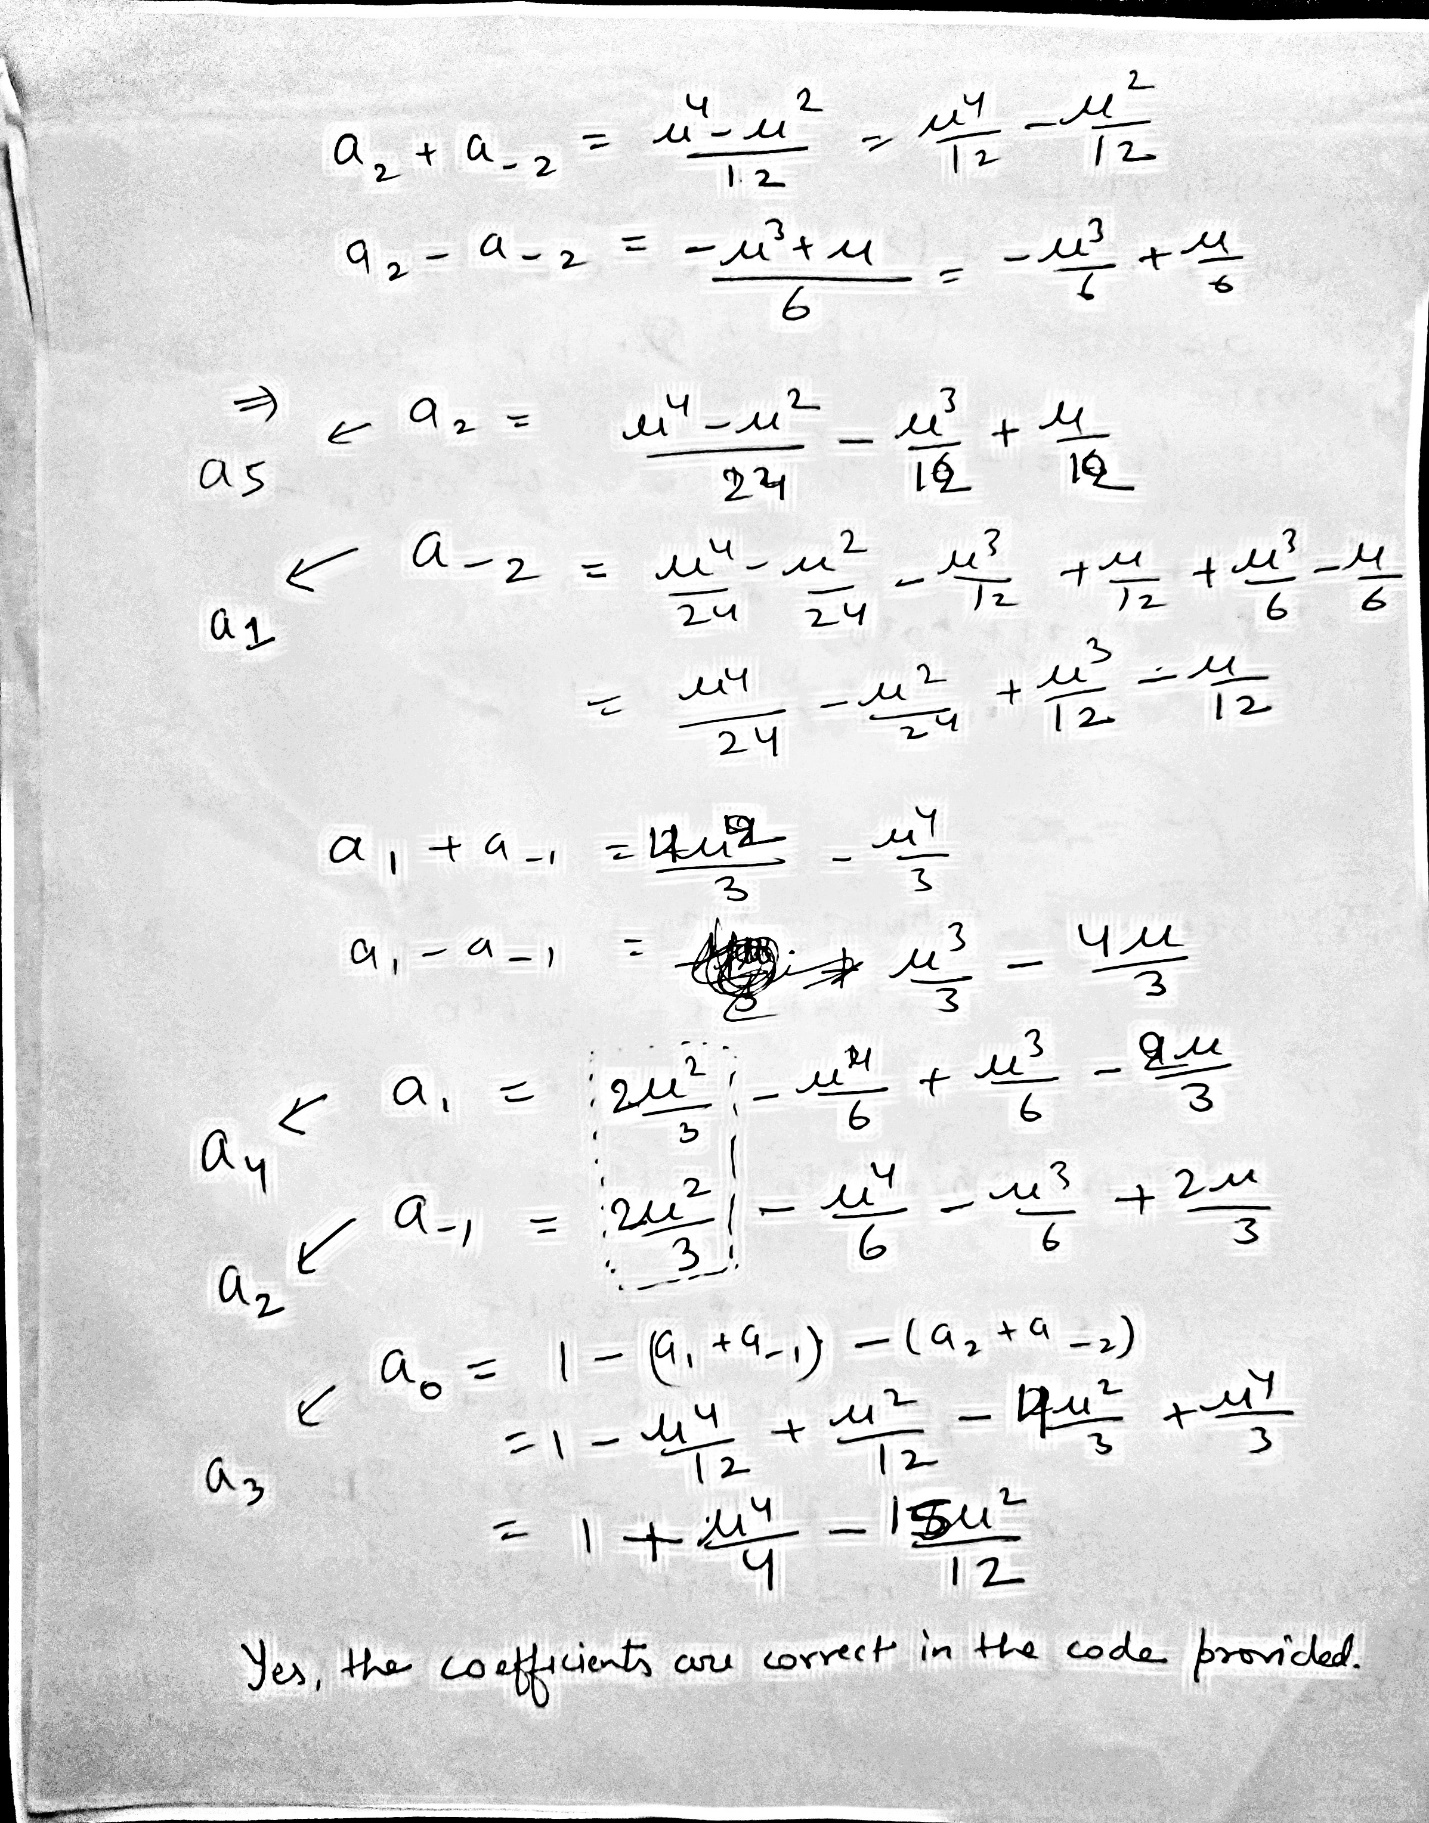 a₂ + a₋₂ = μ⁴ - μ² / 12 = μ⁴/12 - μ²/12
a₂ - a₋₂ = -μ³ + μ / 6 = -μ³/6 + μ/6
⇒ ← a₂ = μ⁴ - μ² / 24 - μ³/12 + μ/12
a5
↙ a₋₂ = μ⁴/24 - μ²/24 - μ³/12 + μ/12 + μ³/6 - μ/6
a1
= μ⁴/24 - μ²/24 + μ³/12 - μ/12
a₁ + a₋₁ = 4μ²/3 - μ⁴/3
a₁ - a₋₁ = μ³/3 - 4μ/3
↙ a₁ = 2μ²/3 - μ⁴/6 + μ³/6 - 2μ/3
a₄
↙ a₋₁ = 2μ²/3 - μ⁴/6 - μ³/6 + 2μ/3
a₂
↙ a₀ = 1 - (a₁ + a₋₁) - (a₂ + a₋₂)
= 1 - μ⁴/12 + μ²/12 - 4μ²/3 + μ⁴/3
a₃
= 1 + μ⁴/4 - 15μ²/12
Yes, the coefficients are correct in the code provided.